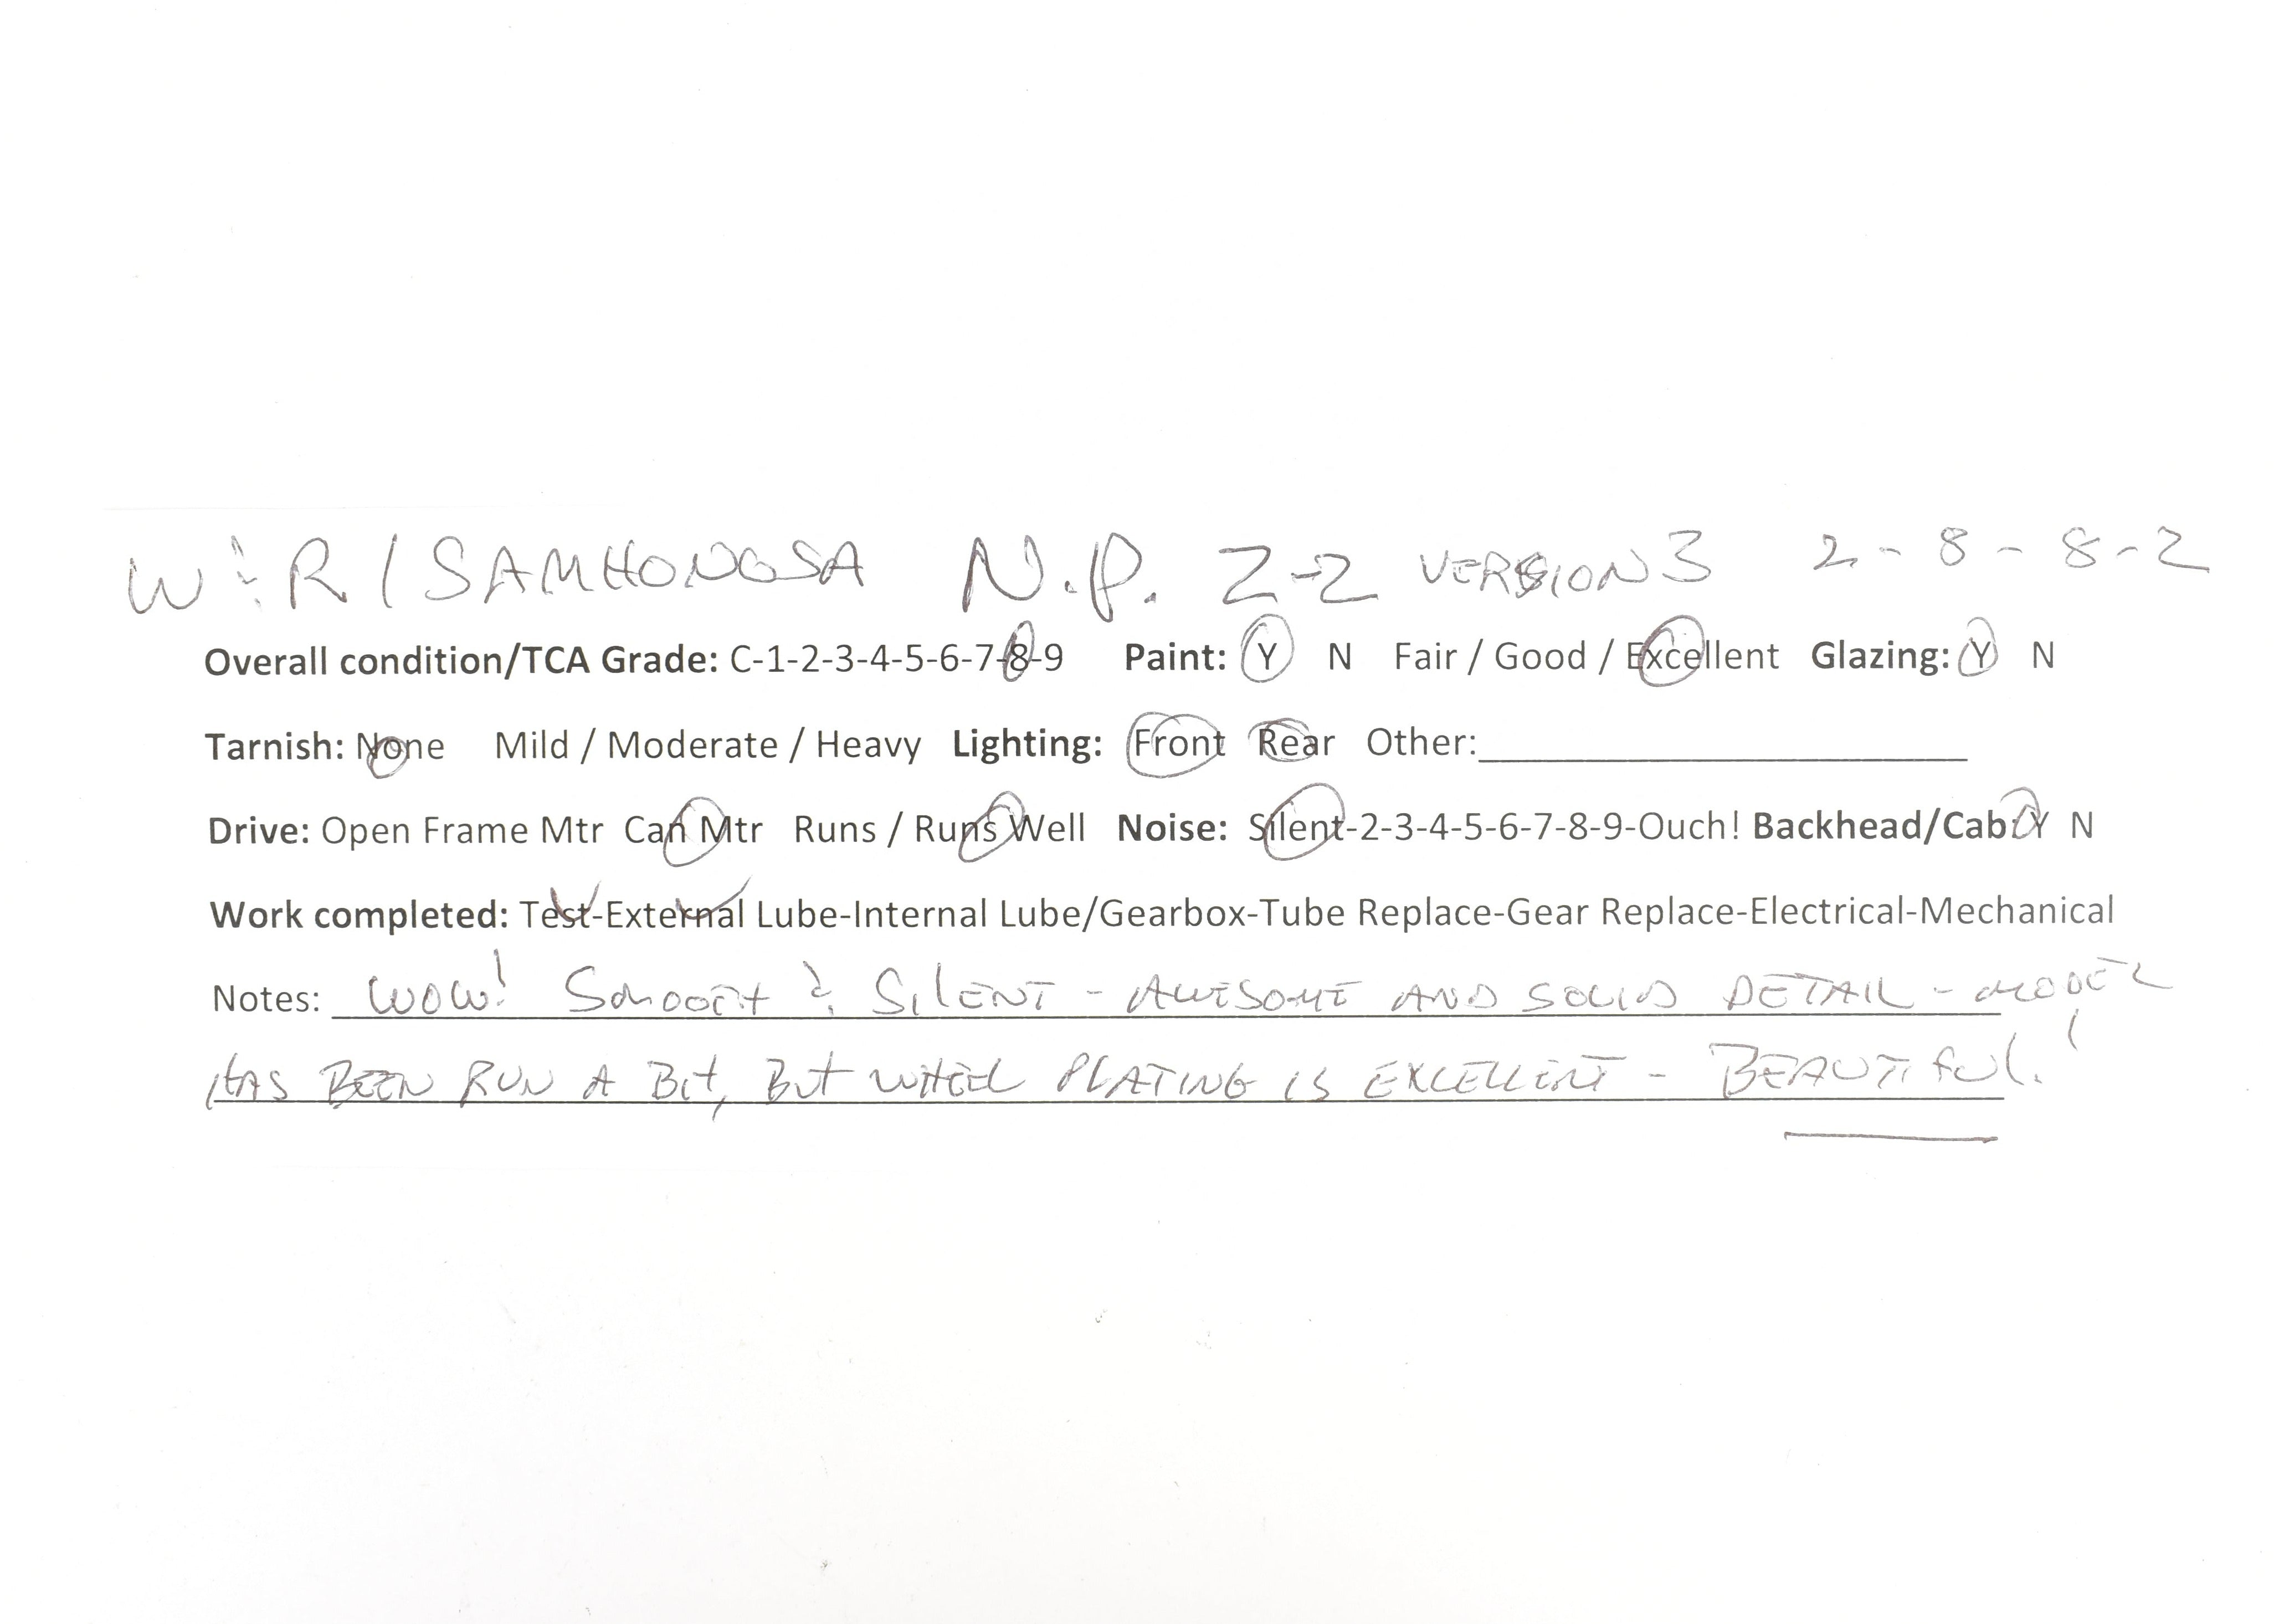 W & R / SAMHONGSA N.P. Z-2 VERSION 3 2-8-8-2
Overall condition/TCA Grade: C-1-2-3-4-5-6-7-8-9 Paint: Y N Fair / Good / Excellent Glazing: Y N
Tarnish: None Mild / Moderate / Heavy Lighting: Front Rear Other:
Drive: Open Frame Mtr Can Mtr Runs / Runs Well Noise: Silent-2-3-4-5-6-7-8-9-Ouch! Backhead/Cab: Y N
Work completed: Test-External Lube-Internal Lube/Gearbox-Tube Replace-Gear Replace-Electrical-Mechanical
Notes: WOW! SMOOTH & SILENT - AWESOME AND SOLID DETAIL - MODEL
HAS BEEN RUN A BIT, BUT WHEEL PLATING IS EXCELLENT - BEAUTIFUL!